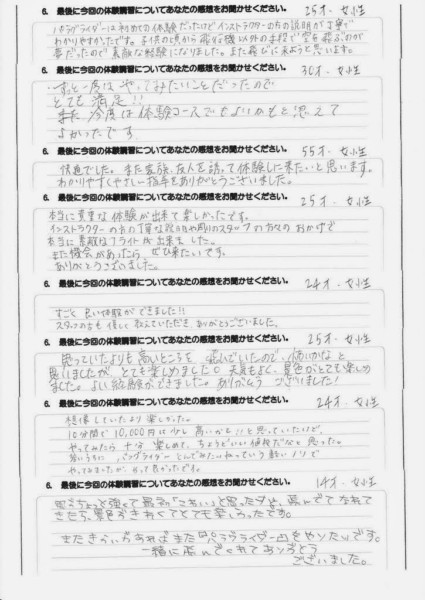 6. 最後に今回の体験講習についてあなたの感想をお聞かせください。 25才・女性
パラグライダーは初めての体験だったけどインストラクターの方の説明が丁寧で
わかりやすかったです。子供の頃から飛行機以外の手段で空を飛ぶのが
夢だったので素敵な経験になりました。また飛びに来ようと思います。
6. 最後に今回の体験講習についてあなたの感想をお聞かせください。 30才・女性
ずっと一度はやってみたいことだったので
とても満足!!
また今度は体験コースでもよいかもと思えて
よかったです
6. 最後に今回の体験講習についてあなたの感想をお聞かせください。 55才・女性
快適でした。また家族、友人を誘って体験しに来たいと思います。
わかりやすくやさしい指導をありがとうございました。
6. 最後に今回の体験講習についてあなたの感想をお聞かせください。 25才・女性
本当に貴重な体験が出来て楽しかったです。
インストラクターの方の丁寧な説明や周りのスタッフの方々のおかげで
本当に素敵なフライトが出来ました。
また機会があったらぜひ来たいです。
ありがとうございました。
6. 最後に今回の体験講習についてあなたの感想をお聞かせください。 24才・女性
すごく良い体験ができました!!
スタッフの方も優しく教えていただき、ありがとうございました。
6. 最後に今回の体験講習についてあなたの感想をお聞かせください。 25才・女性
思っていたよりも高いところを飛んでいたので、怖いかなと
思いましたが、とても楽しめました。天気もよく、景色がとても楽しめ
ました。よい経験ができました。ありがとうございました!
6. 最後に今回の体験講習についてあなたの感想をお聞かせください。 24才・女性
想像していたより楽しかった。
10分間で10,000円は少し高いかも…と思っていたけど、
やってみたら十分楽しめて、ちょうどいい値段だなと思った。
若いうちにパラグライダーとんでみたいねっていう軽いノリで
やってみましたが、やって良かったです。
6. 最後に今回の体験講習についてあなたの感想をお聞かせください。 14才・女性
風がちょっと強くて最初「こわい」と思ったけど、飛んでてなれて
きたら、景色がきれいでとても楽しかったです。
またきかいがあればまたパラグライダーをやりたいです。
一緒に飛んでくれてありがとう
ございました。